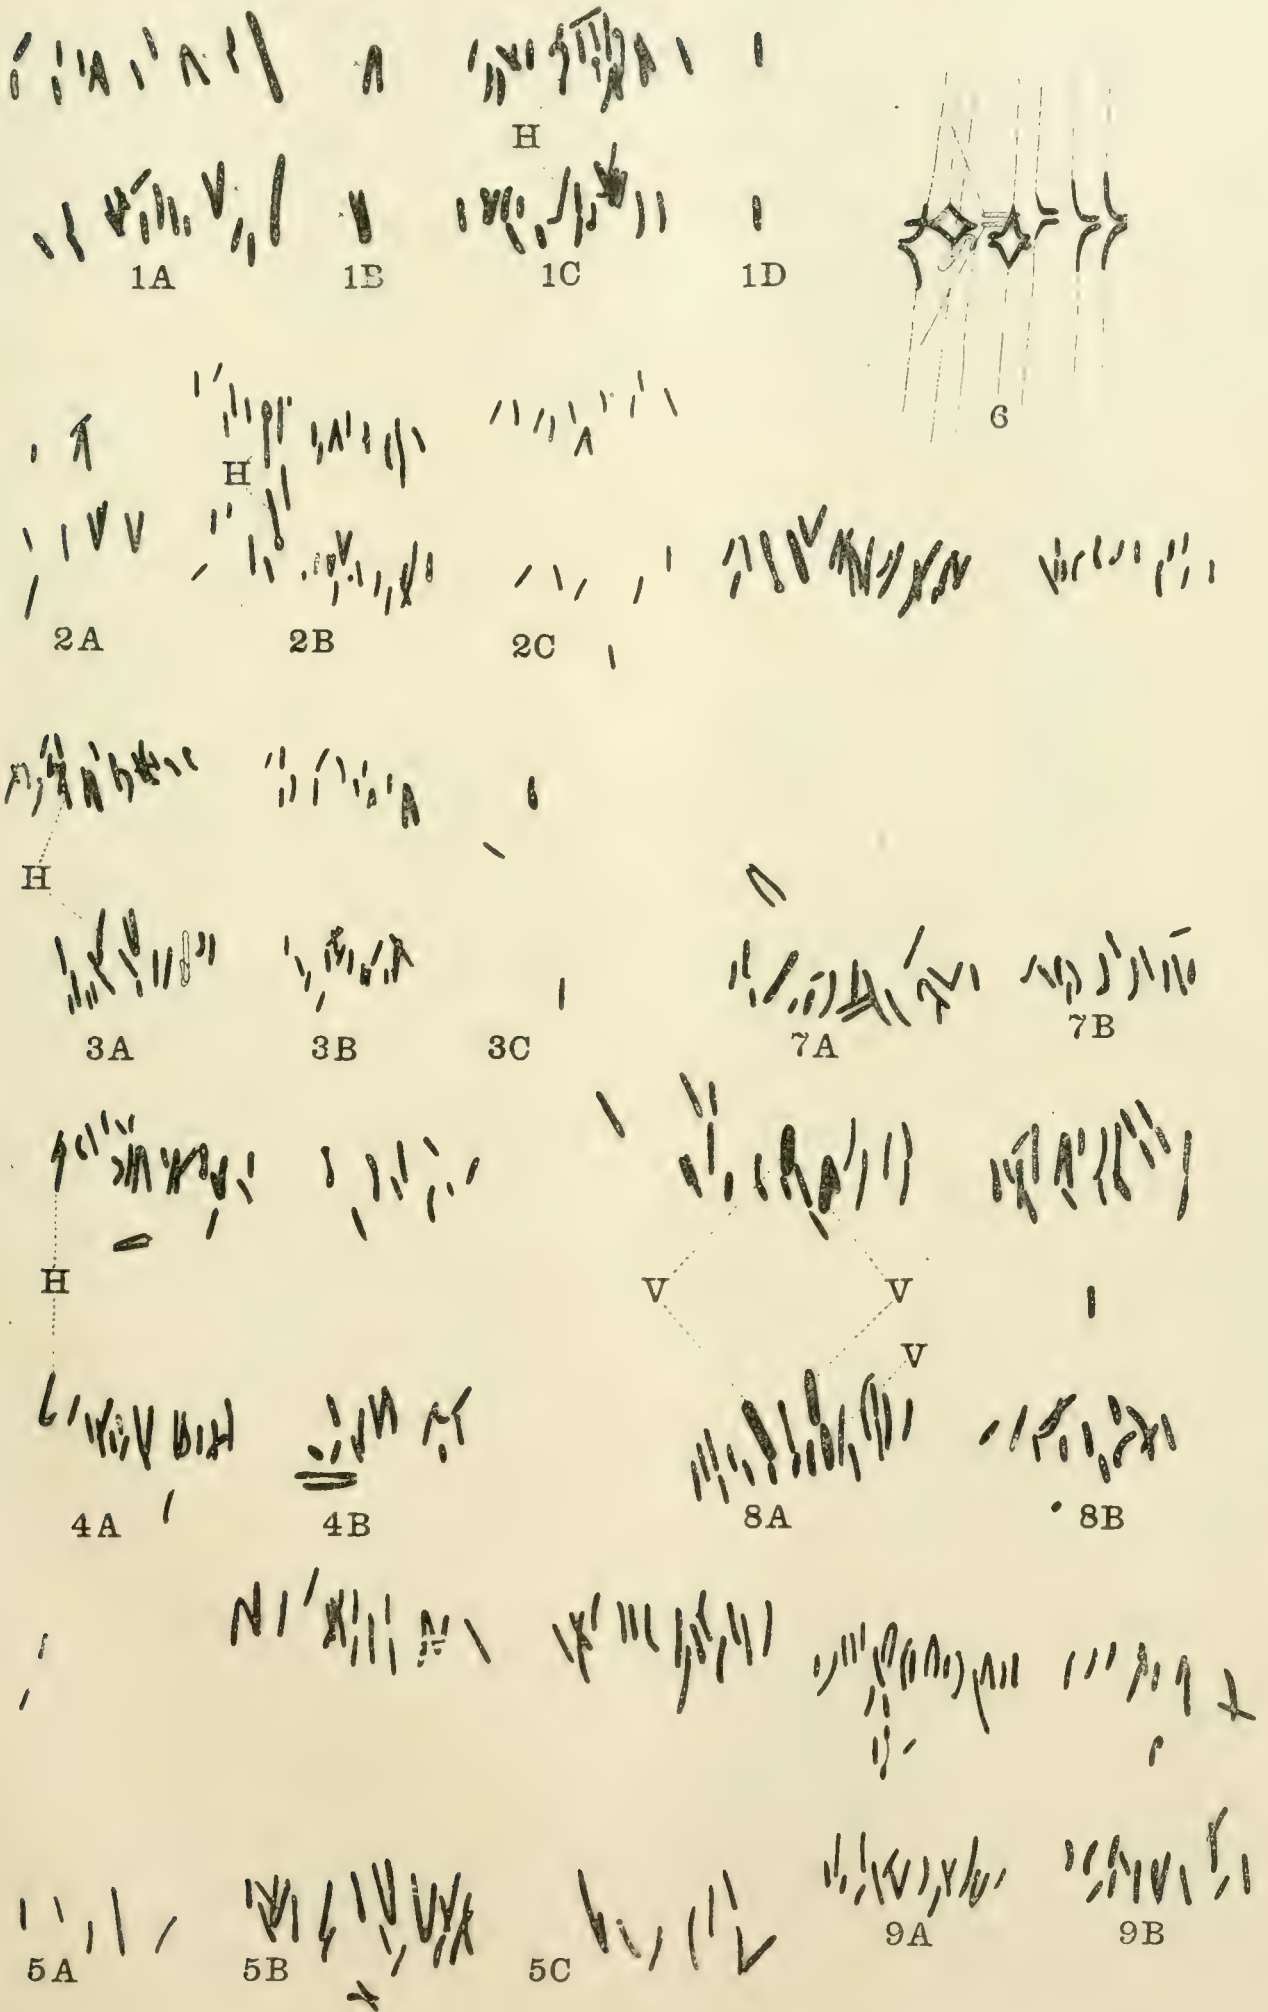 H
1A 1B 1C 1D
6
H
2A 2B 2C
H
3A 3B 3C
7A 7B
H
V V
V
4A 4B
8A 8B
9A 9B
5A 5B 5C